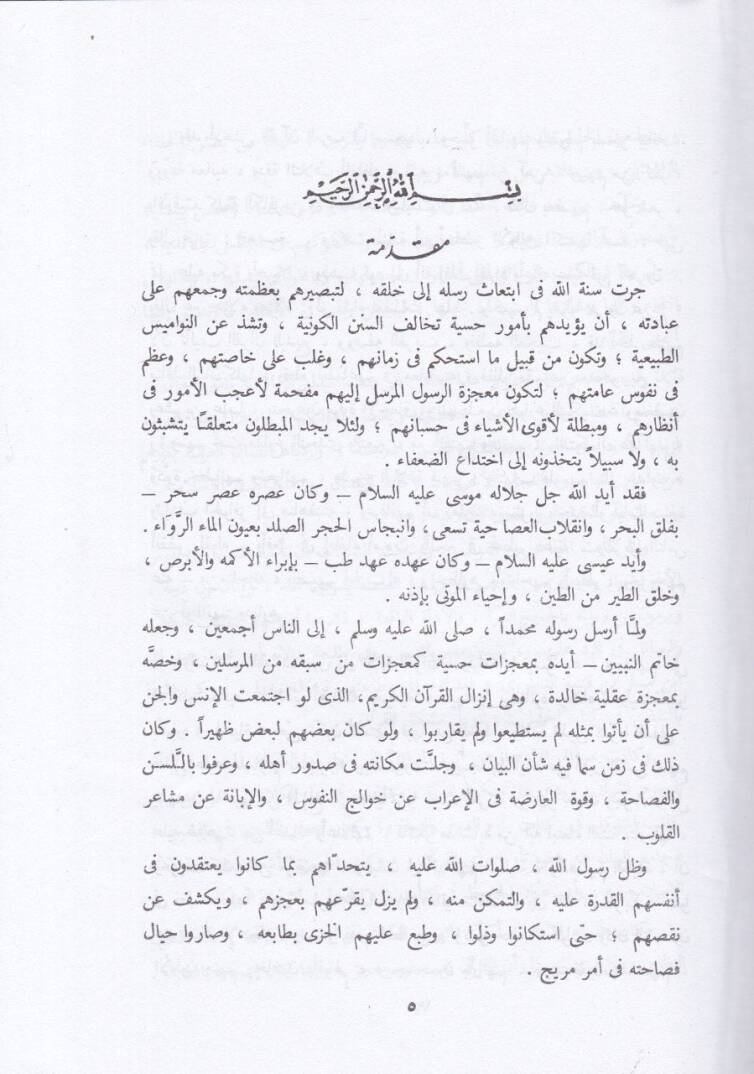 بسم الله الرحمن الرحيم
مقدمة
جرت سنة الله فى ابتعاث رسله إلى خلقه ، لتبصيرهم بعظمته وجمعهم على
عبادته ، أن يؤيدهم بأمور حسية تخالف السنن الكونية ، وتشذ عن النواميس
الطبيعية ؛ وتكون من قبيل ما استحكم فى زمانهم ، وغلب على خاصتهم ، وعظم
فى نفوس عامتهم ؛ لتكون معجزة الرسول المرسل إليهم مفحمة لأعجب الأمور فى
أنظارهم ، ومبطلة لأقوى الأشياء فى حسبانهم ؛ ولئلا يجد المبطلون متعلقًا يتشبثون
به ، ولا سبيلاً يتخذونه إلى اختداع الضعفاء .
فقد أيد الله جل جلاله موسى عليه السلام – وكان عصره عصر سحر –
بفلق البحر ، وانقلاب العصا حية تسعى ، وانبجاس الحجر الصلد بعيون الماء الرَّوَاء .
وأيد عيسى عليه السلام – وكان عهده عهد طب – بإبراء الأكمه والأبرص ،
وخلق الطير من الطين ، وإحياء الموتى بإذنه .
ولمَّا أرسل رسوله محمداً ، صلى الله عليه وسلم ، إلى الناس أجمعين ، وجعله
خاتم النبيين – أيده بمعجزات حسية كمعجزات من سبقه من المرسلين ، وخصَّه
بمعجزة عقلية خالدة ، وهى إنزال القرآن الكريم، الذى لو اجتمعت الإنس والجن
على أن يأتوا بمثله لم يستطيعوا ولم يقاربوا ، ولو كان بعضهم لبعض ظهيراً . وكان
ذلك فى زمن سما فيه شأن البيان ، وجلَّت مكانته فى صدور أهله ، وعرفوا باللَّسَن
والفصاحة ، وقوة العارضة فى الإعراب عن خوالج النفوس ، والإبانة عن مشاعر
القلوب .
وظل رسول الله ، صلوات الله عليه ، يتحدّاهم بما كانوا يعتقدون فى
أنفسهم القدرة عليه ، والتمكن منه ، ولم يزل يقرّعهم بعجزهم ، ويكشف عن
نقصهم ؛ حتى استكانوا وذلوا ، وطبع عليهم الخزى بطابعه ، وصاروا حيال
فصاحته فى أمر مريج .
٥